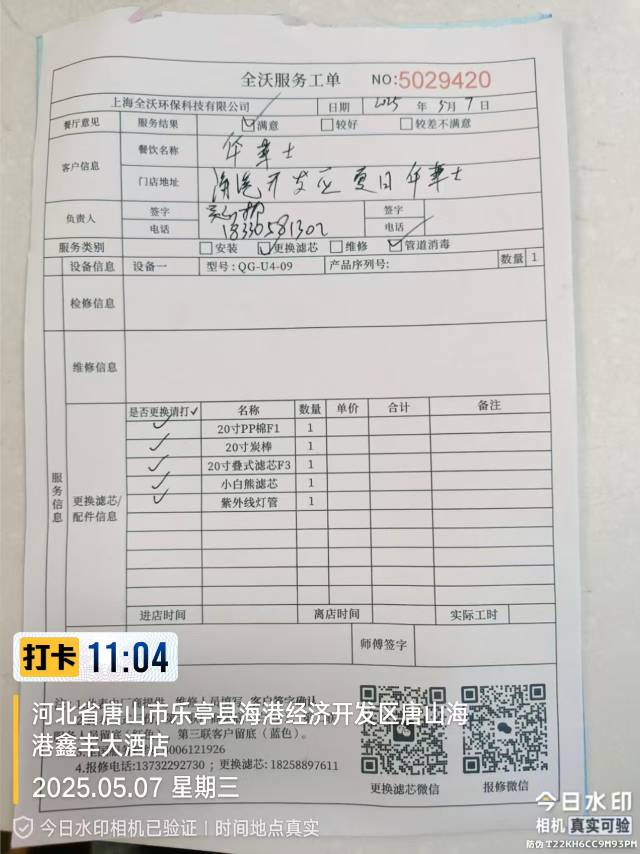 全沃服务工单 NO:5029420
上海全沃环保科技有限公司 日期 2025 年 5月 7 日
餐厅意见 服务结果 ☑满意 ☐较好 ☐较差不满意
客户信息 餐饮名称 华莱士
门店地址 海港开发区 夏日 华莱士
负责人 签字 签字
电话 18330581302 电话
服务类别 ☐安装 ☑更换滤芯 ☐维修 ☑管道消毒
设备信息 设备一 型号:QG-U4-09 产品序列号: 数量 1
检修信息
维修信息
服务信息
更换滤芯/配件信息
是否更换请打✓ 名称 数量 单价 合计 备注
✓ 20寸PP棉F1 1
✓ 20寸炭棒 1
✓ 20寸叠式滤芯F3 1
✓ 小白熊滤芯 1
✓ 紫外线灯管 1
进店时间 离店时间 实际工时
师傅签字
打卡 11:04
第三联客户留底（蓝色）。
河北省唐山市乐亭县海港经济开发区唐山海
港鑫丰大酒店
4.报修电话:13732292730；更换滤芯: 18258897611
2025.05.07 星期三
更换滤芯微信 报修微信
今日水印相机已验证 | 时间地点真实
今日水印
相机 真实可验
防伪 T22KH6CC9M93PM